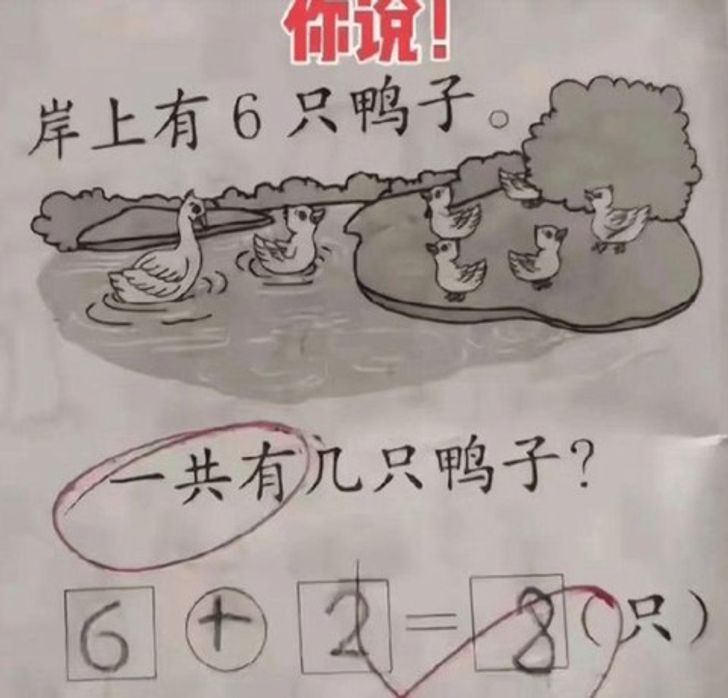 你说!
岸上有6只鸭子。
一共有几只鸭子?
6+2=8(只)